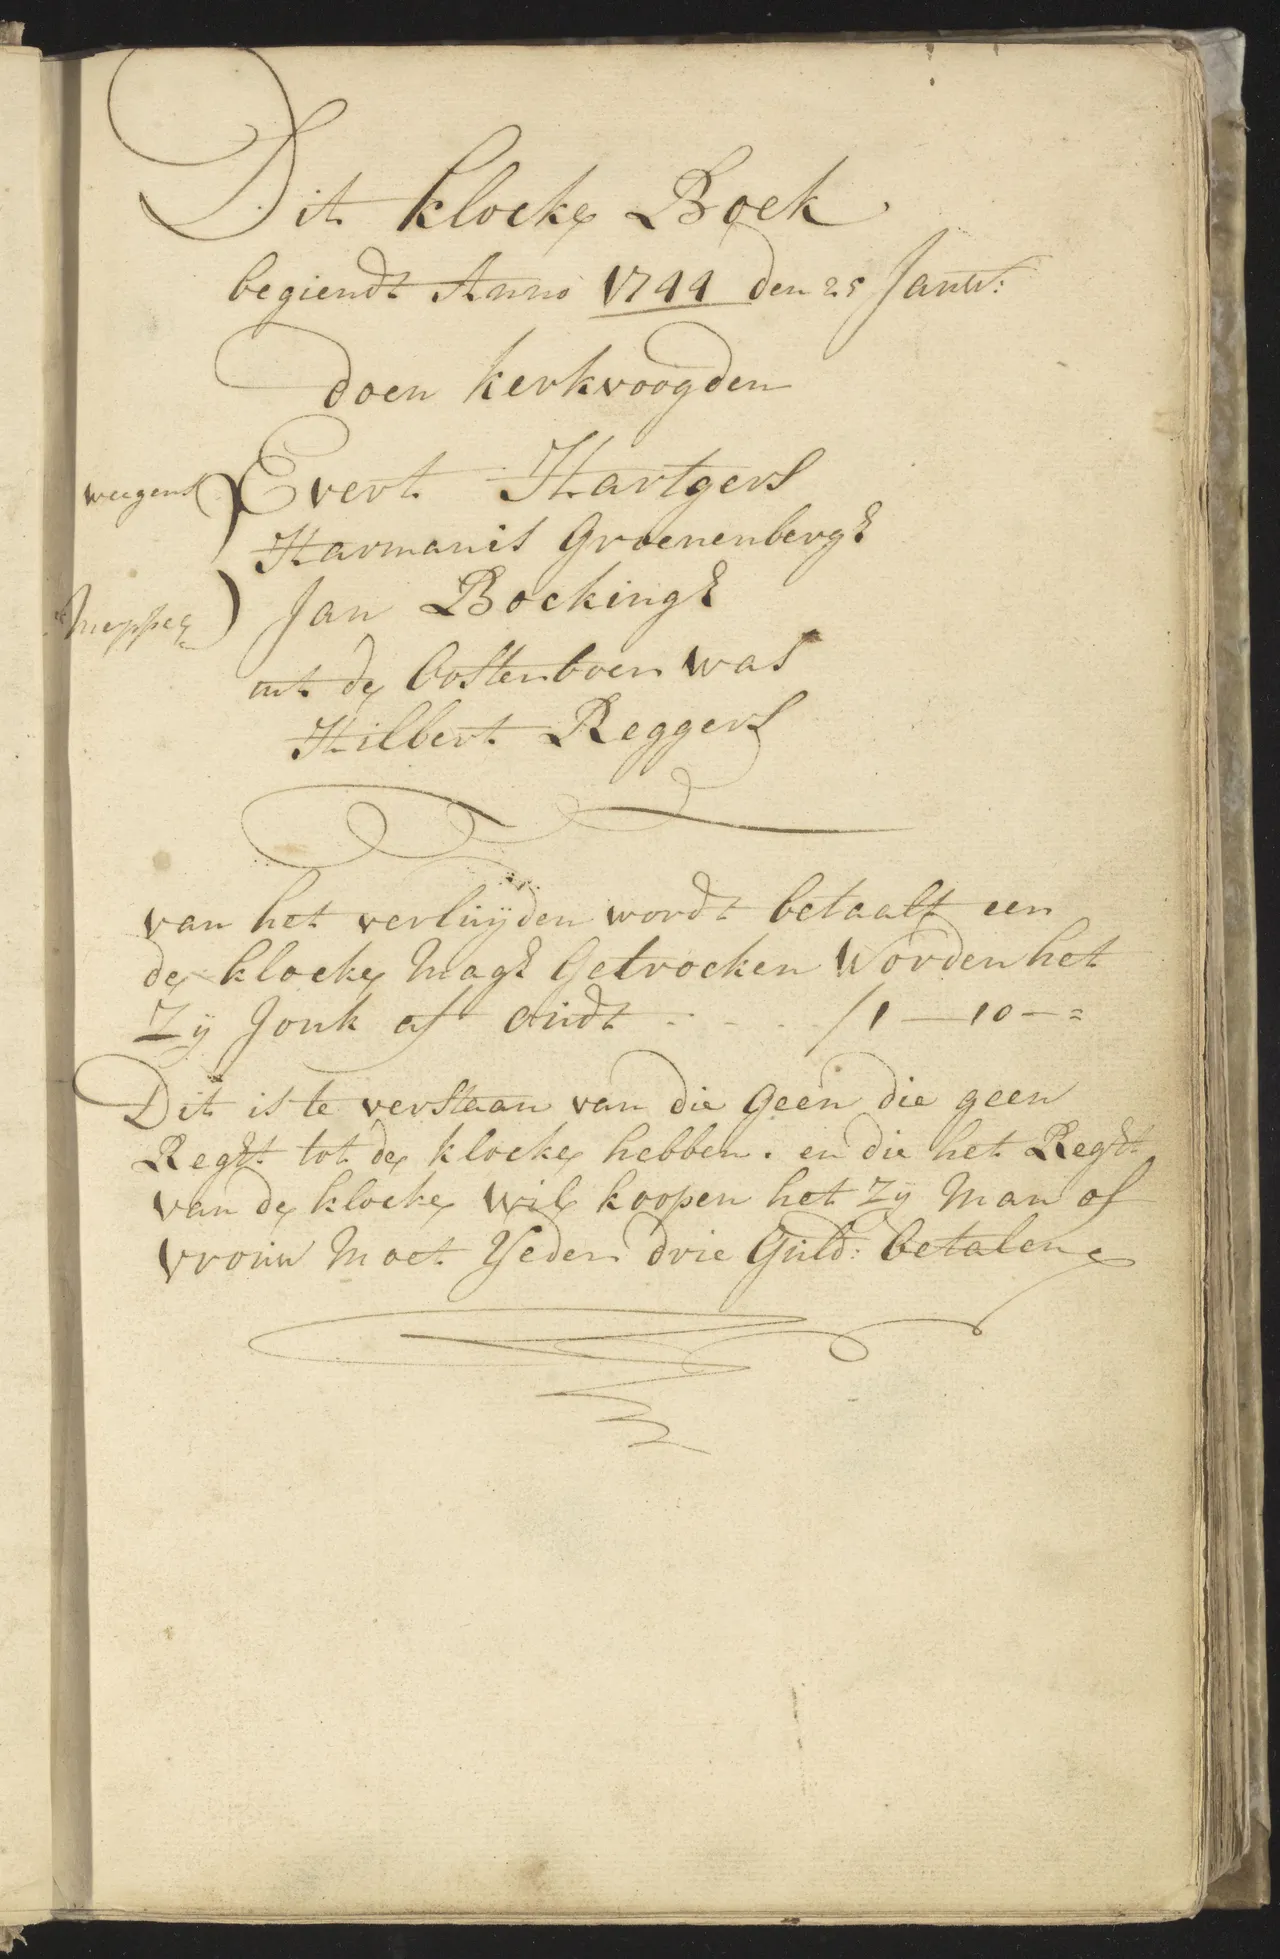 Dit klocke Boek
begiendt Anno 1744 den 25 Janw:
doen kerkvoogden
weegens Evert Hartgers
Harmanis Groenenbergh
Meppel Jan Bockingh
uit de Oostenboer was
Hilbert Reggers
van het verluijden wordt betaalt een
de klocke Magh Getrocken Worden het
Zij Jonk of oudt - - - - ƒ 1 — 10 - =
Dit is te verstaan van die Geen die geen
Reght tot de klocke hebben. en die het Reght
van de klocke wil koopen het Zij Man of
vrouw Moet Yeder drie Guld: betalen